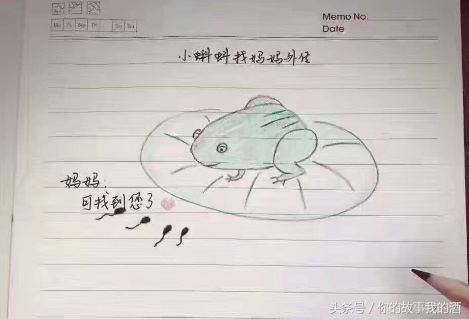 Memo No.
Date
Mo Tu We Th Fr Sa Su
小蝌蚪找妈妈外传
妈妈:
可找到您了
头条号 / 你的故事我的酒